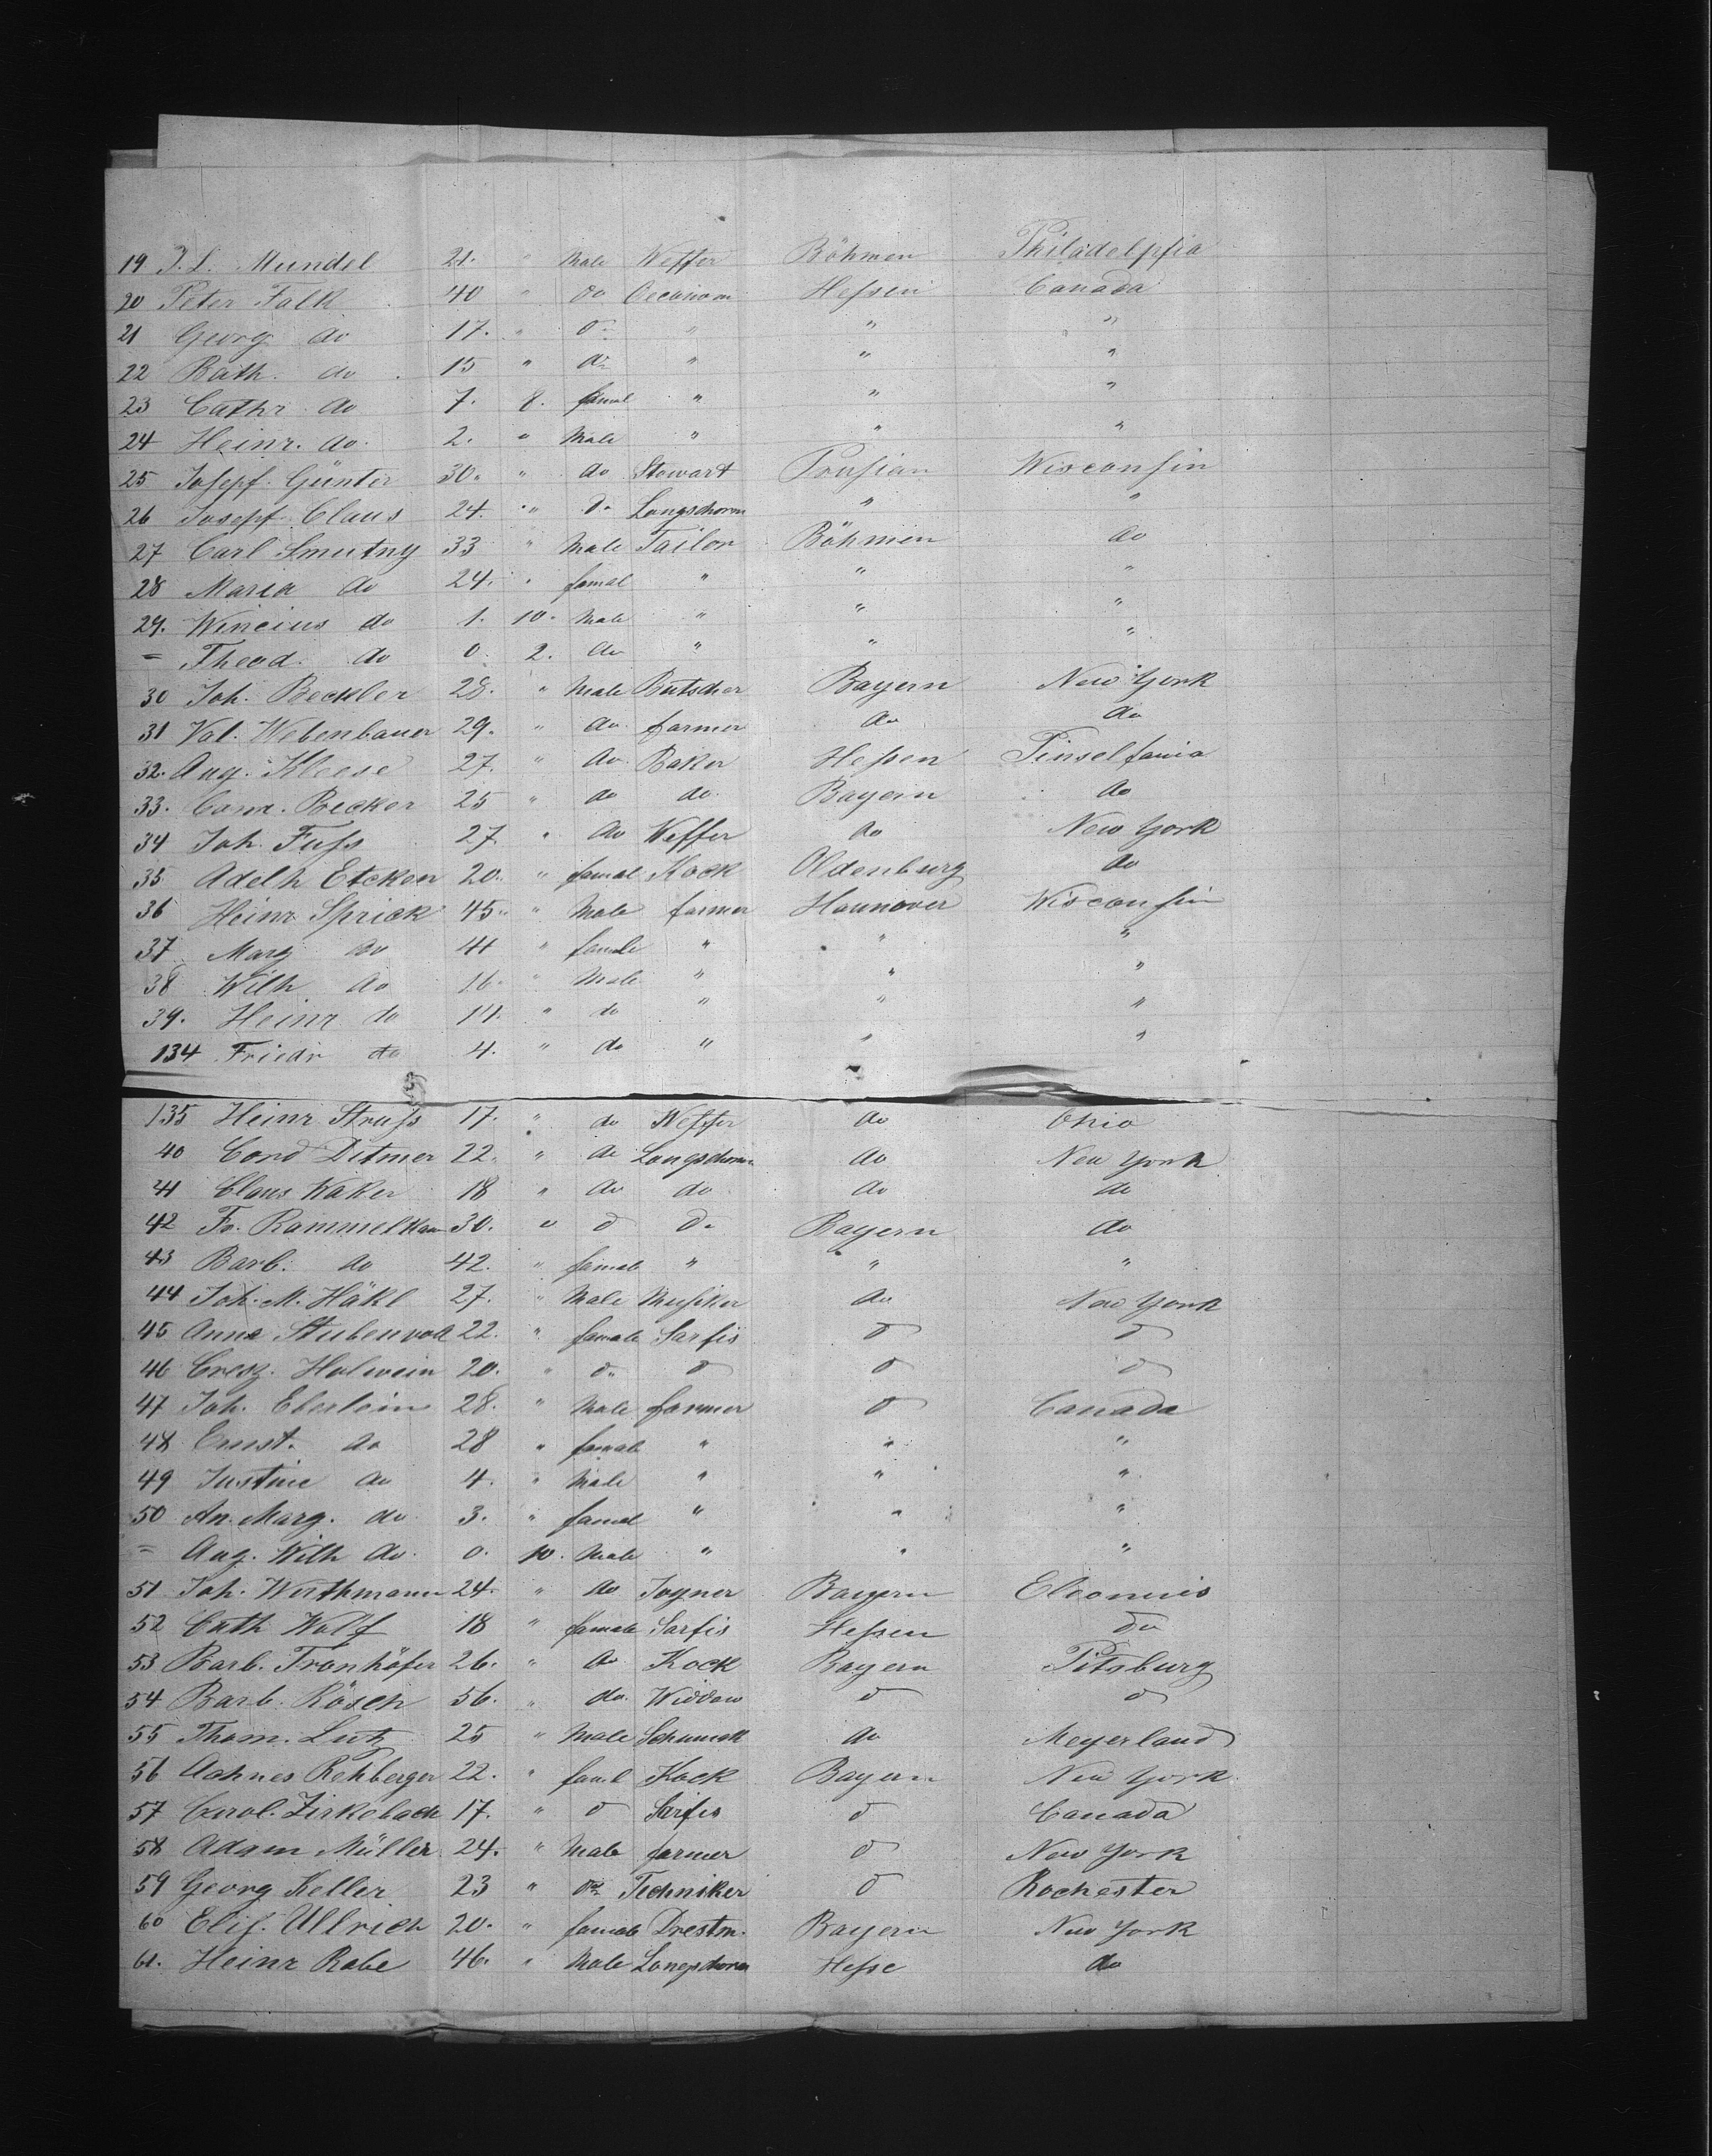 19 J. L. Mundel 21. " Male Weffer Böhmen Philadelpfia
20 Peter Falk 40 " do Oeconom Hessen Canada
21 Georg do 17. " do " " "
22 Bath. do 15 " do " " "
23 Cathr do 7. 8. famal " " "
24 Heinr. do. 2. " Male " " "
25 Josepf Günter 30. " do Stowart Prusian Wisconsin
26 Josepf Claus 24. " do Longschorm " "
27 Carl Smutny 33 " Male Tailor Böhmen do
28 Maria do 24. " famal " " "
29. Wincius do 1. 10. Male " " "
= Thead. do 0. 2. do " " "
30 Joh. Beckler 28. " Male Butscher Bayern New York
31 Val. Webenbauer 29. " do farmer do do
32. Aug. Kleese 27. " do Baker Hessen Pinselfania
33. Conr. Becker 25 " do do. Bayern do
34 Joh. Fuss 27. " do Weffer do New York
35 Adelh Etcken 20. " famal Kock Oldenburg do
36 Heinr Sprick 45. " Male farmer Hannover Wisconsin
37 Marg do 41 " famale " " "
38 Wilh do 16. " Male " " "
39. Heinr do 14. " do " " "
134 Friedr do 4. " do " " "
135 Heinr Struss 17. " do Weffer do Ohio
40 Cord Ditmer 22. " do Longschorm do New York
41 Claus Waker 18 " do do do do
42 Fr. Rammelkam 30. " d do Bayern do
43 Barb. do 42. " famale " " "
44 Joh. M. Häkl 27. " Male Musiker do New York
45 Anna Stubenvoll 22. " famale Sarfis d d
46 Cresz. Holwein 20. " d d d d
47 Joh. Eberlein 28. " Male farmer d Canada
48 Ernst. do 28 " famale " " "
49 Justine do 4. " Male " " "
50 An. Marg. do 3. " famal " " "
= Aug. Wilh do. 0. 10. Male " " "
51 Joh. Wuthmann 24. " do Joyner Bayern Eleonuis
52 Cath Wolf 18 " famale Sarfis Hessen do
53 Barb. Fronhöfer 26. " do Kock Bayern Pitsburg
54 Barb. Rösch 56. " do. Widdow d d
55 Thom. Lutz 25 " Male Schumak do Meyerland
56 Aahnes Rehberger 22. " faml Kock Bayern New York
57 Carol. Zirkelbach 17. " d Sarfis d Canada
58 Adam Müller 24. " Male farmer d New York
59 Georg Keller 23 " do Techniker d Rochester
60 Elis. Ullrich 20. " famale Drestm. Bayern New York
61. Heinr Rabe 46. " Male Longschorm Hesse do